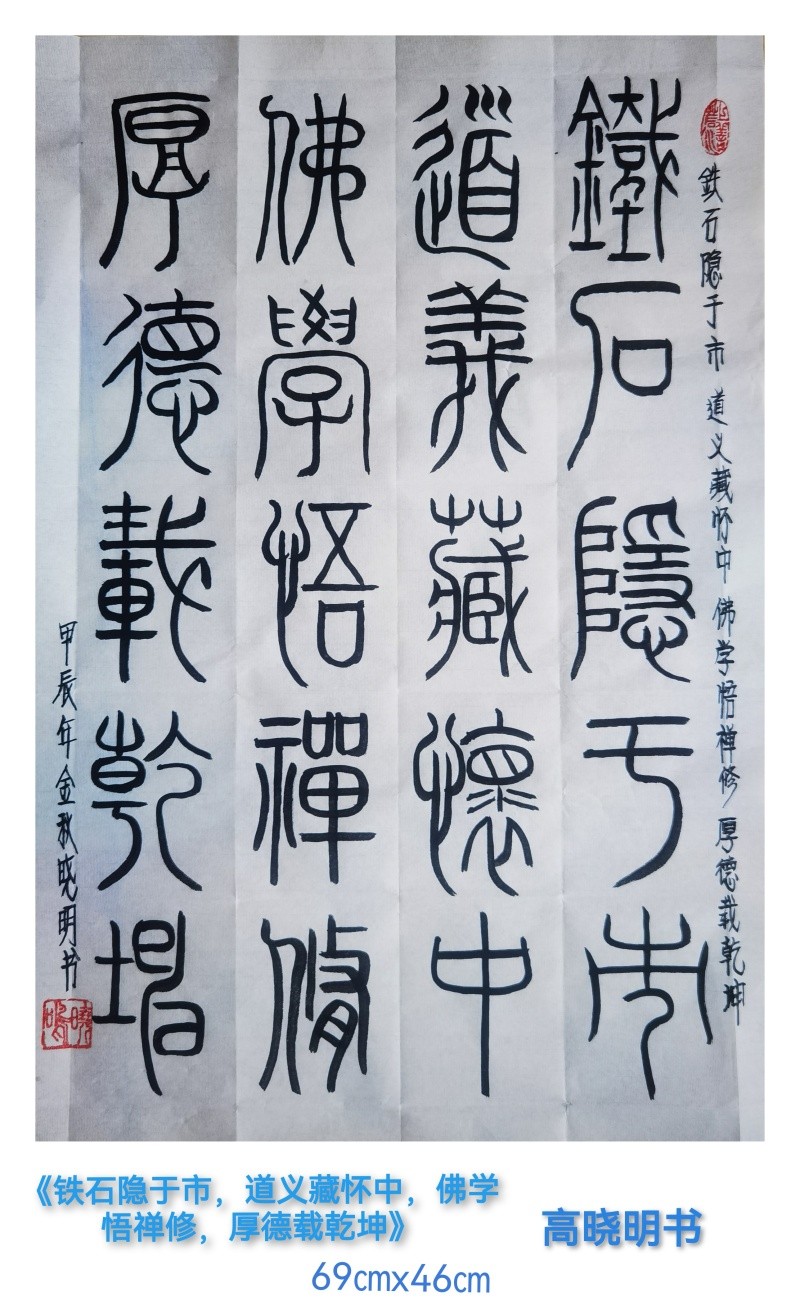 鐵石隱于市
道義藏懷中
佛學悟禪脩
厚德載乾坤
鉄石隐于市 道义藏怀中 佛学悟禅修 厚德载乾坤
甲辰年金秋晓明书
《铁石隐于市，道义藏怀中，佛学
悟禅修，厚德载乾坤》
高晓明书
69cmx46cm